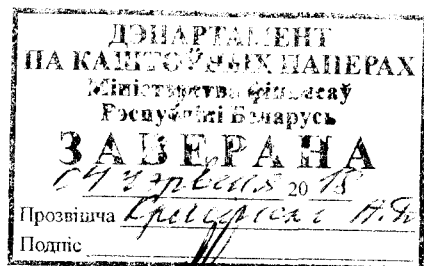 ДЭПАРТАМЕНТ
ПА КАШТОЎНЫХ ПАПЕРАХ
Міністэрства фінансаў
Рэспублікі Беларусь
ЗАВЕРАНА
04 чэрвеня 20 15
Прозвішча
Подпіс